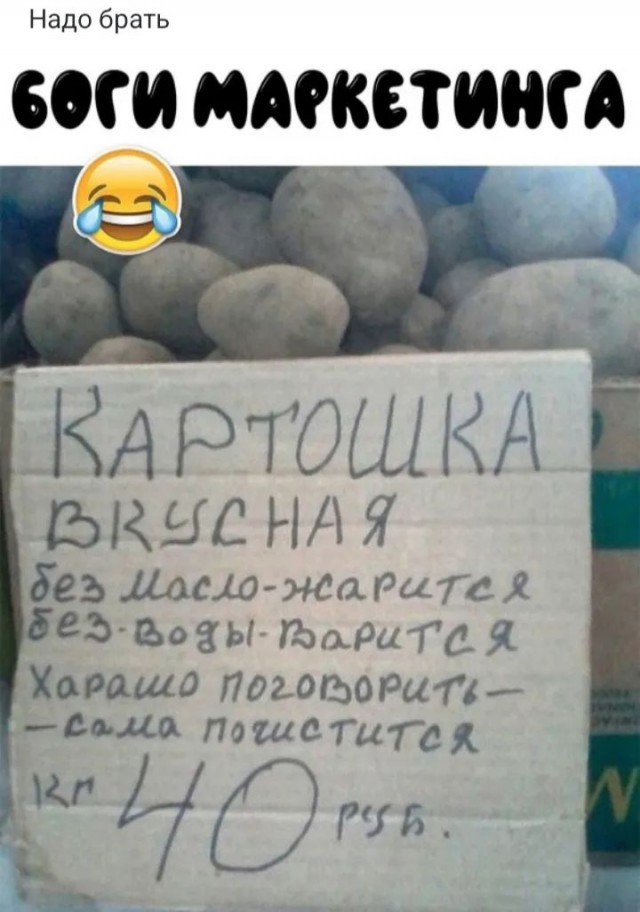 Надо брать
БОГИ МАРКЕТИНГА
КАРТОШКА
ВКУСНАЯ
без Масло-жарится
без-воды-варится
Харашо поговорить-
-сама почистится
кг 40 руб.